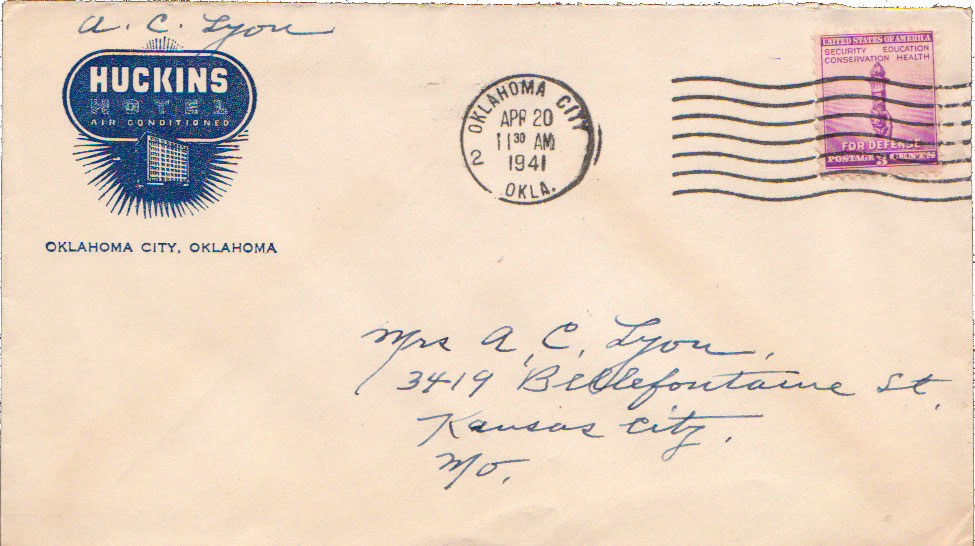 A. C. Lyon
HUCKINS
HOTEL
AIR CONDITIONED
OKLAHOMA CITY, OKLAHOMA
OKLAHOMA CITY
APR 20
11 30 AM
1941
2
OKLA.
UNITED STATES OF AMERICA
SECURITY EDUCATION
CONSERVATION HEALTH
FOR DEFENSE
POSTAGE 3 CENTS
Mrs A. C. Lyon,
3419 Bellefontaine St.
Kansas City,
Mo.